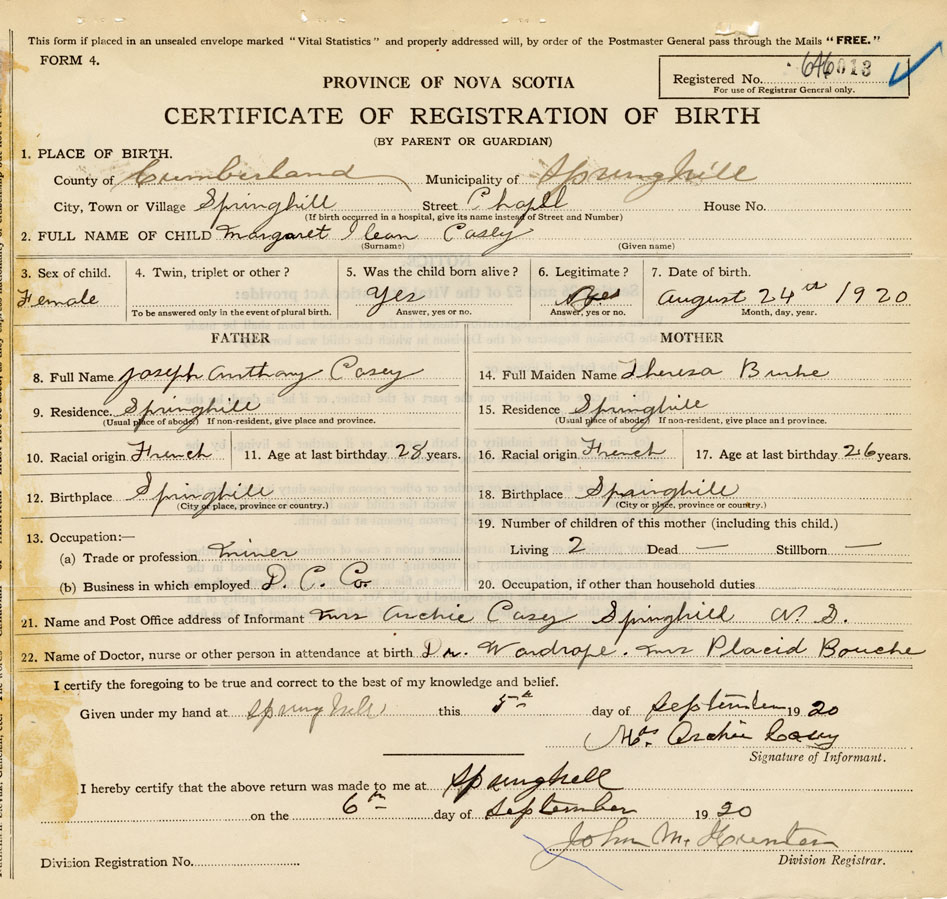 This form if placed in an unsealed envelope marked "Vital Statistics" and properly addressed will, by order of the Postmaster General pass through the Mails "FREE."
FORM 4.
Registered No. 646013
For use of Registrar General only.
PROVINCE OF NOVA SCOTIA
CERTIFICATE OF REGISTRATION OF BIRTH
(BY PARENT OR GUARDIAN)
1. PLACE OF BIRTH.
County of Cumberland Municipality of Springhill
City, Town or Village Springhill Street Chapel House No.
(If birth occurred in a hospital, give its name instead of Street and Number)
2. FULL NAME OF CHILD Margaret Ilean Casey
(Surname) (Given name)
3. Sex of child. 4. Twin, triplet or other? 5. Was the child born alive? 6. Legitimate? 7. Date of birth.
Female Yes Yes August 24th 1920
To be answered only in the event of plural birth. Answer, yes or no. Answer, yes or no. Month, day, year.
FATHER MOTHER
8. Full Name Joseph Anthony Casey 14. Full Maiden Name Theresa Burke
9. Residence. Springhill 15. Residence Springhill
(Usual place of abode) If non-resident, give place and province. (Usual place of abode) If non-resident, give place and province.
10. Racial origin French 11. Age at last birthday 28 years. 16. Racial origin French 17. Age at last birthday 26 years.
12. Birthplace Springhill 18. Birthplace Springhill
(City or place, province or country.) (City or place, province or country.)
13. Occupation:— 19. Number of children of this mother (including this child.)
(a) Trade or profession Miner Living 2 Dead — Stillborn —
(b) Business in which employed D. C. Co. 20. Occupation, if other than household duties
21. Name and Post Office address of Informant Mrs Archie Casey Springhill N. S.
22. Name of Doctor, nurse or other person in attendance at birth Dr. Wardrope. Mrs Placid Bouche
I certify the foregoing to be true and correct to the best of my knowledge and belief.
Given under my hand at Springhill this 5th day of September 1920
Mrs. Archie Casey
Signature of Informant.
I hereby certify that the above return was made to me at Springhill
on the 6th day of September 1920
John M.
Division Registration No. Division Registrar.